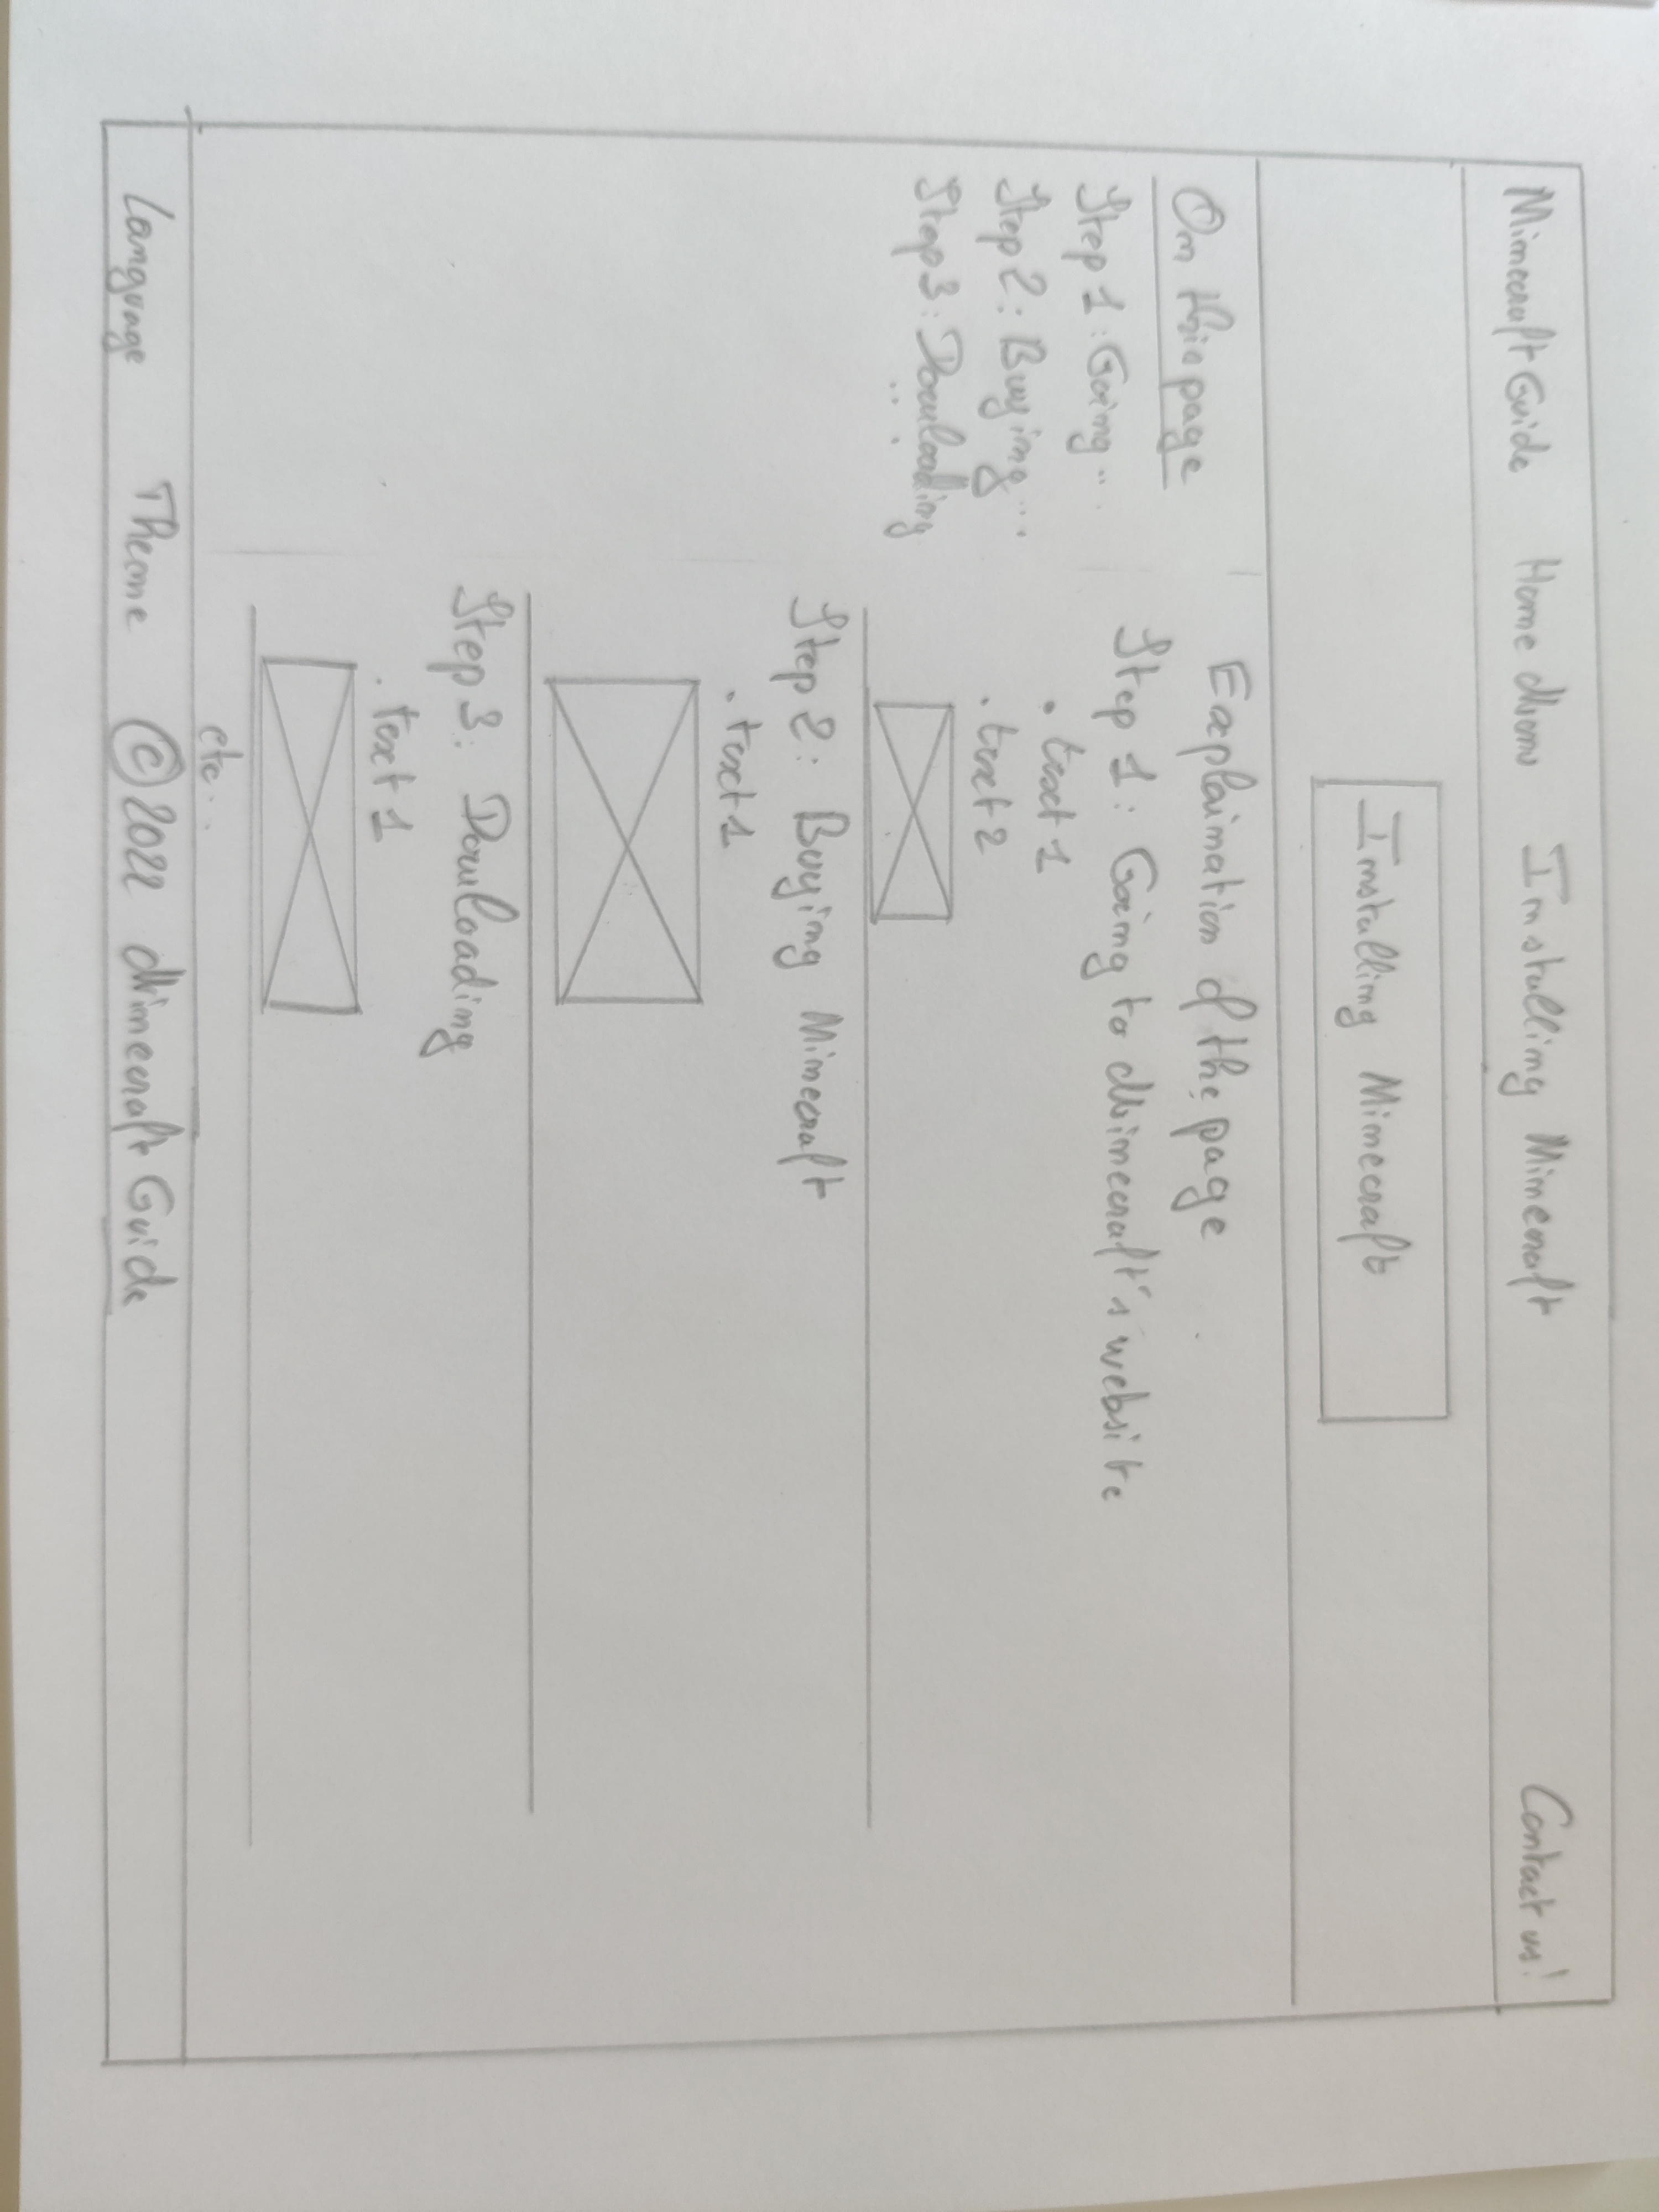 Minecraft Guide Home Menu Installing Minecraft Contact us!
Installing Minecraft
On this page
Step 1: Going..
Step 2: Buying...
Step 3: Dowloading
...
Explaination of the page
Step 1: Going to Minecraft's website
. text 1
. text 2
Step 2: Buying Minecraft
. text 1
Step 3: Dowloading
. text 1
etc...
Language Theme © 2022 Minecraft Guide